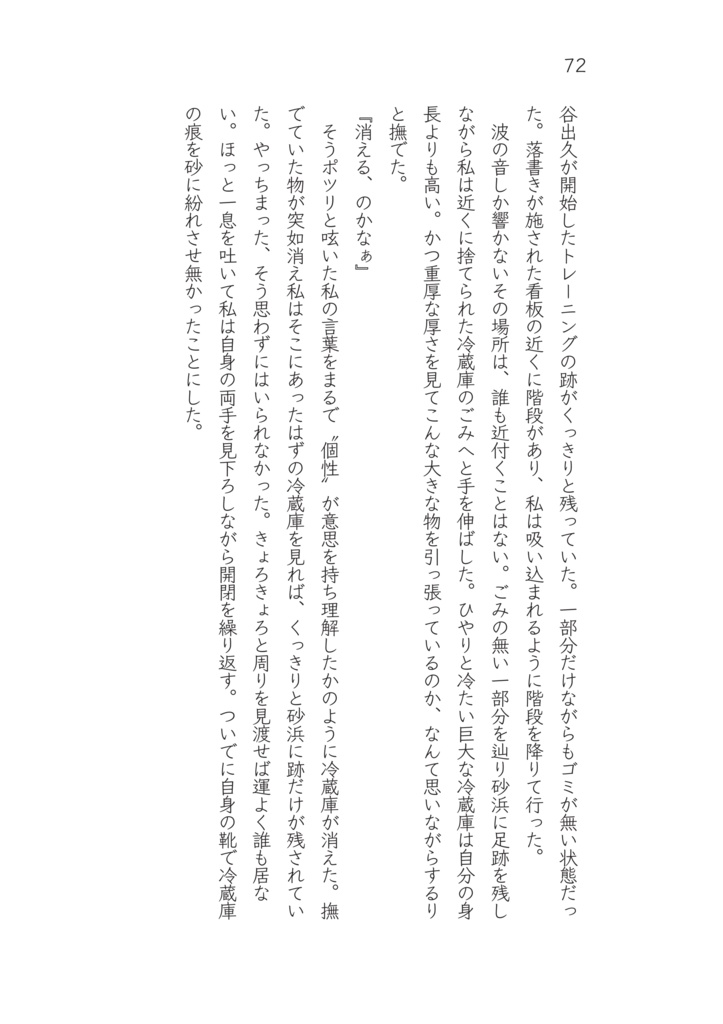 72
谷出久が開始したトレーニングの跡がくっきりと残っていた。一部分だけながらもゴミが無い状態だっ
た。落書きが施された看板の近くに階段があり、私は吸い込まれるように階段を降りて行った。
　波の音しか響かないその場所は、誰も近付くことはない。ごみの無い一部分を辿り砂浜に足跡を残し
ながら私は近くに捨てられた冷蔵庫のごみへと手を伸ばした。ひやりと冷たい巨大な冷蔵庫は自分の身
長よりも高い。かつ重厚な厚さを見てこんな大きな物を引っ張っているのか、なんて思いながらするり
と撫でた。
『消える、のかなぁ』
　そうポツリと呟いた私の言葉をまるで〝個性〟が意思を持ち理解したかのように冷蔵庫が消えた。撫
でていた物が突如消え私はそこにあったはずの冷蔵庫を見れば、くっきりと砂浜に跡だけが残されてい
た。やっちまった、そう思わずにはいられなかった。きょろきょろと周りを見渡せば運よく誰も居な
い。ほっと一息を吐いて私は自身の両手を見下ろしながら開閉を繰り返す。ついでに自身の靴で冷蔵庫
の痕を砂に紛れさせ無かったことにした。